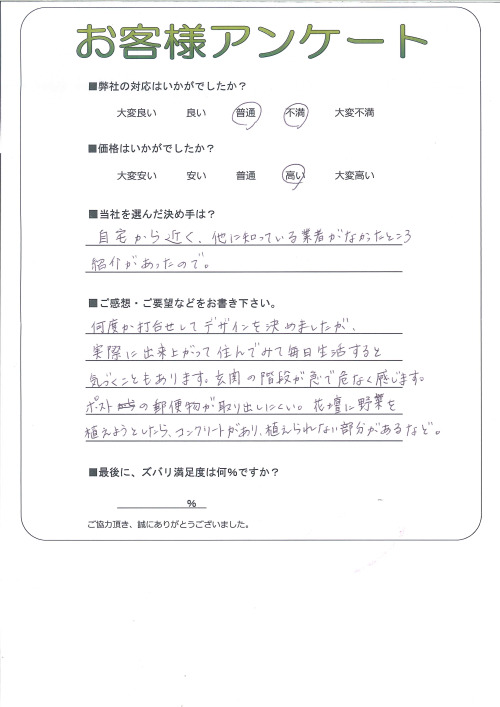 お客様アンケート
■弊社の対応はいかがでしたか？
大変良い 良い 普通 不満 大変不満
■価格はいかがでしたか？
大変安い 安い 普通 高い 大変高い
■当社を選んだ決め手は？
自宅から近く、他に知っている業者がなかったところ
紹介があったので。
■ご感想・ご要望などをお書き下さい。
何度か打合せしてデザインを決めましたが、
実際に出来上がって住んでみて毎日生活すると
気づくこともあります。玄関の階段が急で危なく感じます。
ポストの郵便物が取り出しにくい。花壇に野菜を
植えようとしたら、コンクリートがあり、植えられない部分があるなど。
■最後に、ズバリ満足度は何％ですか？
％
ご協力頂き、誠にありがとうございました。